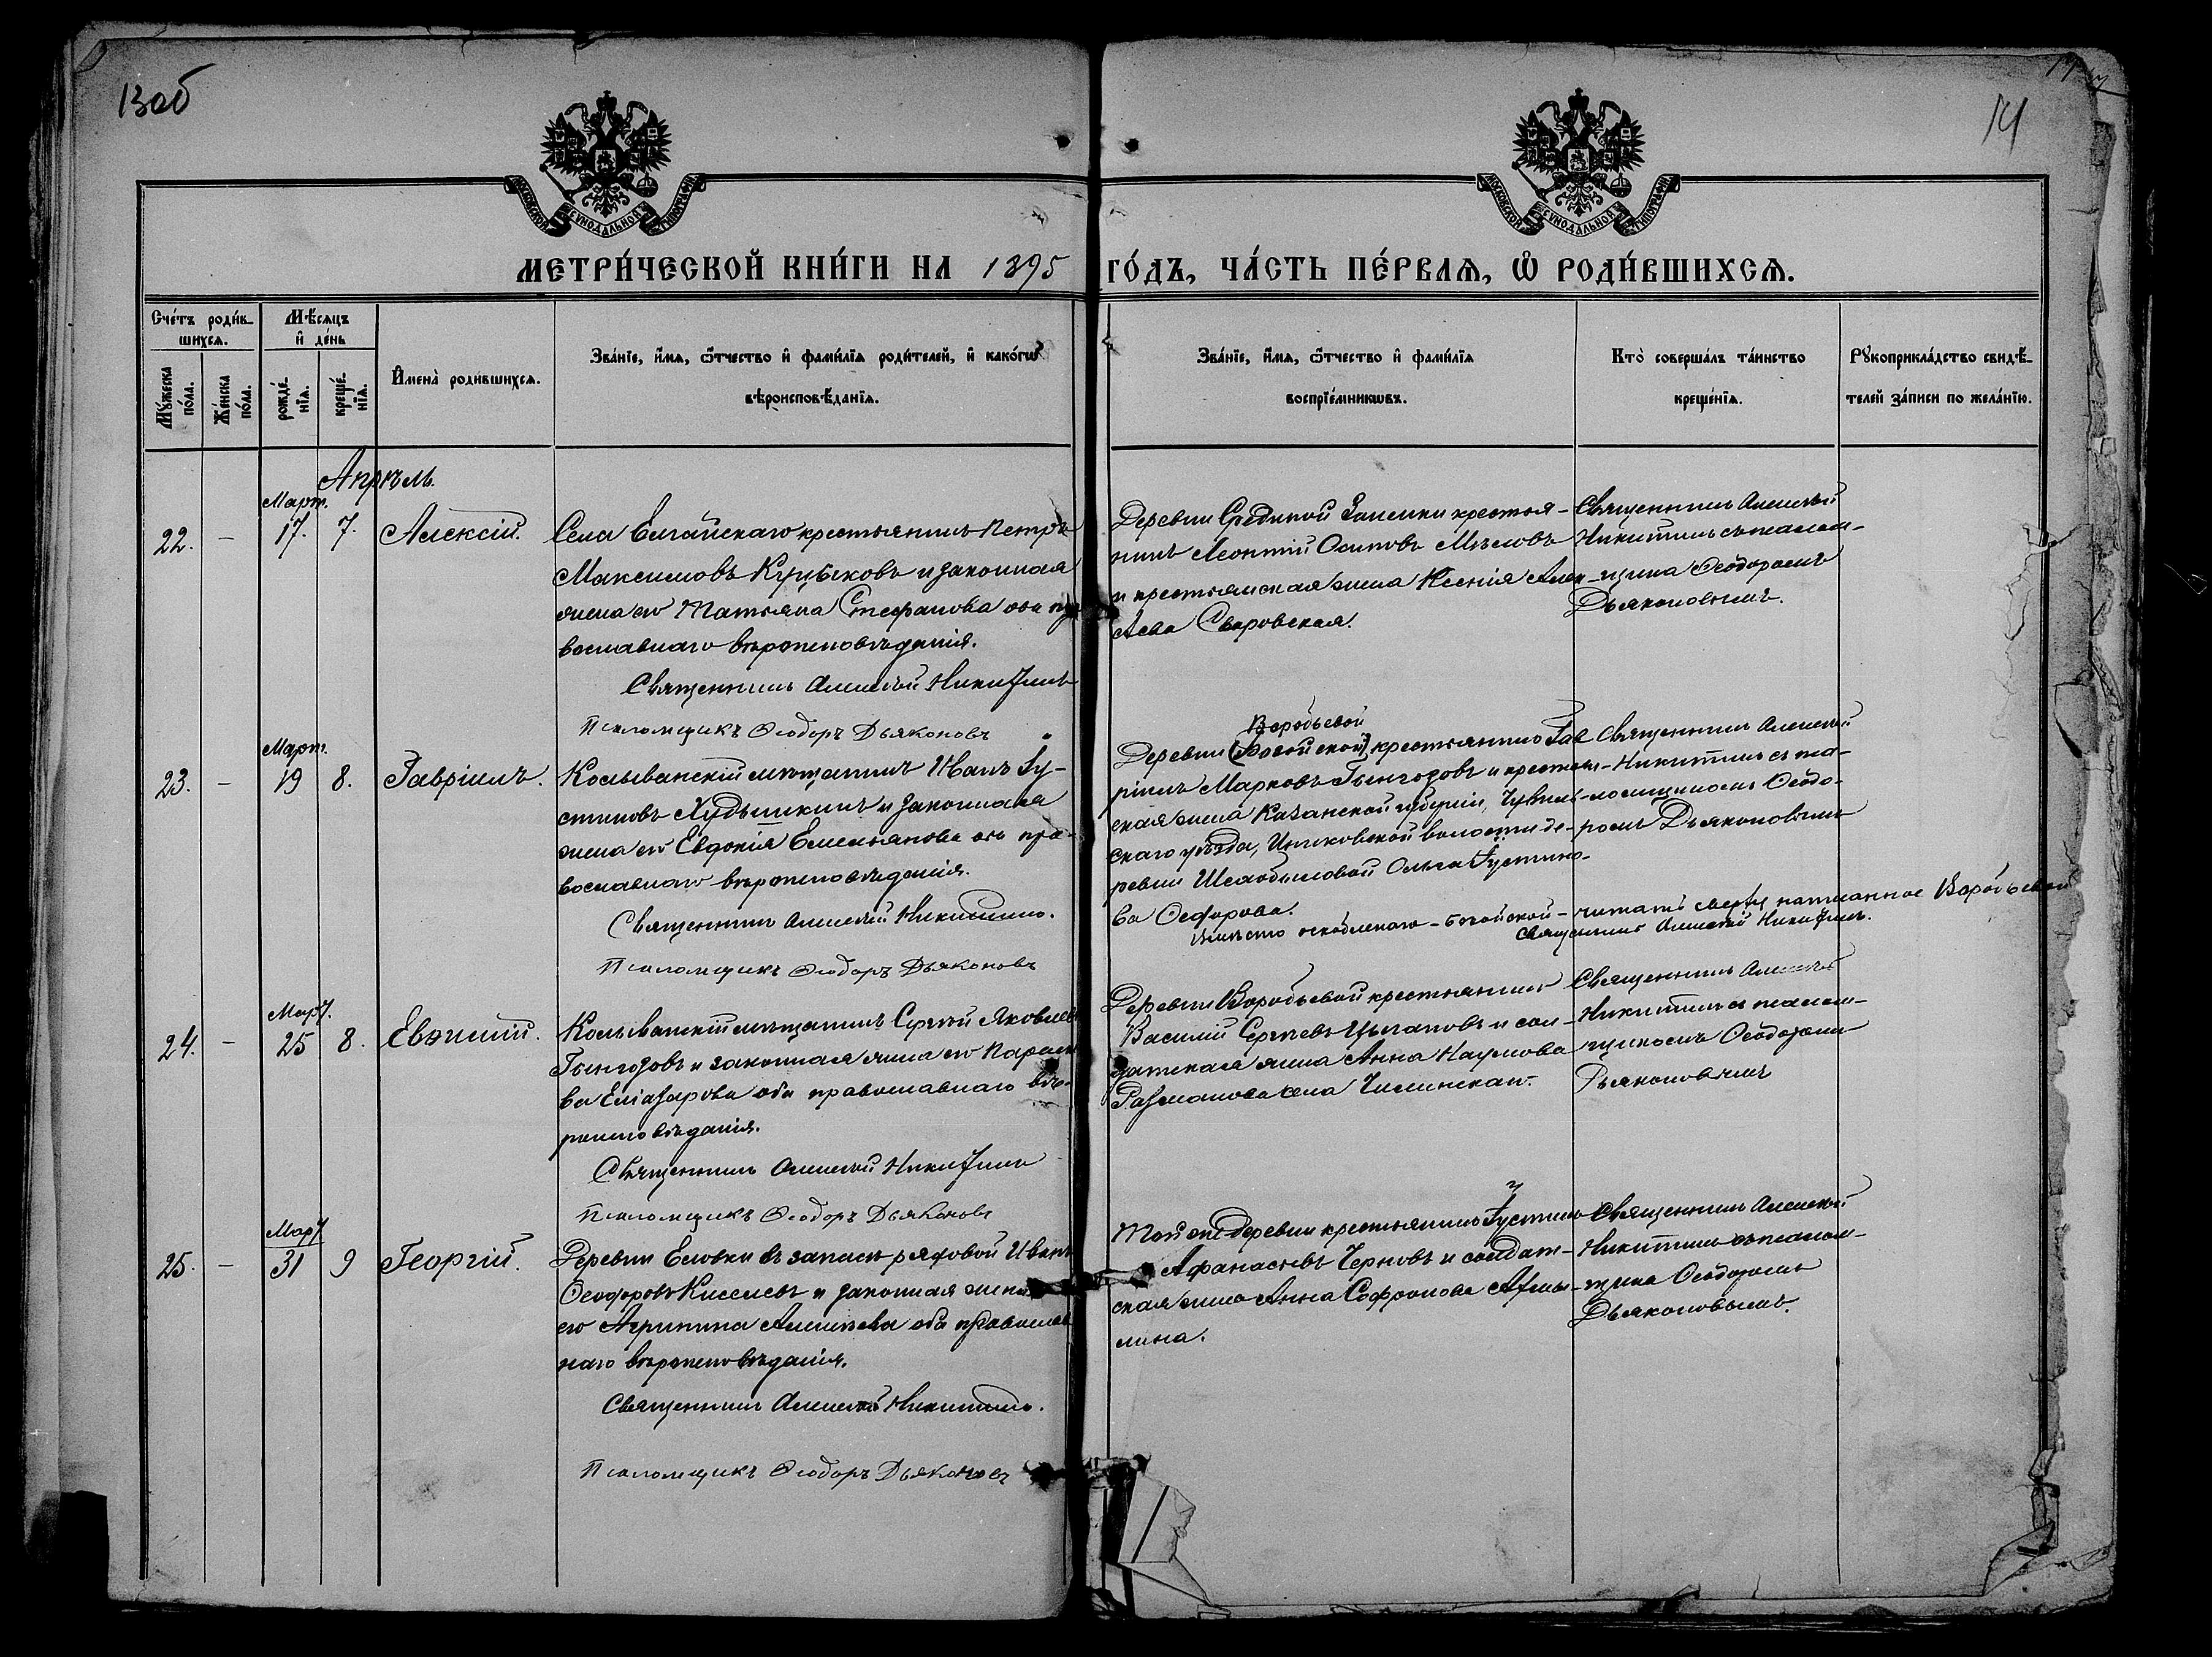 13об
14
МОСКОВСКОЙ СѴНОДАЛЬНОЙ ТИПОГРАФІИ
МОСКОВСКОЙ СѴНОДАЛЬНОЙ ТИПОГРАФІИ
МЕТРИ́ЧЕСКОЙ КНИ́ГИ НА 1895 ГО́ДЪ, ЧА́СТЬ ПЕ́РВАѦ, Ѡ РОДИ́ВШИХСѦ.
Сче́тъ роди́в-
шихсѧ.
Мꙋ́жеска по́ла.
Же́нска по́ла.
Мѣ́сѧцъ и҆ де́нь
рожде́нїѧ.
креще́нїѧ.
И҆мена̀ роди́вшихсѧ.
Зва́нїе, и҆́мѧ, ѻ҆́тчество и҆ фами́лїѧ роди́телей, и҆ како́гѡ
вѣроисповѣ́данїѧ.
Зва́нїе, и҆́мѧ, ѻ҆́тчество и҆ фами́лїѧ
воспрїе́мникѡвъ.
Кто̀ соверша́лъ та́инство
креще́нїѧ.
Рꙋкоприкла́дство свидѣ́-
телей за́писи по жела́нїю.
Апрѣль.
Март.
22. - 17. 7. Алексій.
Села Елгайскаго крестьянинъ Петръ
Максимовъ Куцыковъ и законная
жена его Татьяна Стефанова оба пра
вославнаго вѣроисповѣданія.
Священникъ Алексѣй Никитинъ
Псаломщикъ Ѳеодоръ Дьяконовъ
Деревни Средниной Заимки крестья-
нинъ Леонтій Осиповъ Мѣловъ
и крестьянская жена Ксенія Алек-
сѣева Сваровская.
Священникъ Алексѣй
Никитинъ съ псалом-
щика Ѳеодоромъ
Дьяконовымъ.
Март.
23. - 19 8. Гавріилъ.
Колыванскій мѣщанинъ Иванъ Іу-
стиновъ Худышкинъ и законная
жена его Евдокія Емельянова оба пра-
вославнаго вѣроисповѣданія.
Священникъ Алексѣй Никитинъ.
Псаломщикъ Ѳеодоръ Дьяконовъ
Воробьевой
Деревни (Бобойской) крестьянинъ Гав
ріилъ Марковъ Тынгозовъ и крестьян-
ская жена Казанской губерніи, Цивиль-
скаго уѣзда, волости де-
ревни Шелобыловой Ольга Іустино-
ва Ѳеодорова.
Вмѣсто оскобленаго - Бобойской - читать сверху написанное Воробьевой
Священникъ Алексѣй Никитинъ.
Священникъ Алексѣй
Никитинъ съ пса-
ломщикомъ Ѳеодо-
ромъ Дьяконовымъ
Март.
24. - 25 8. Евѳимій.
Колыванскій мѣщанинъ Сергѣй Яковлевъ
Тынгозовъ и законная жена его Параске
ва Еліазарова оба православнаго вѣ-
роисповѣданія.
Священникъ Алексѣй Никитинъ
Псаломщикъ Ѳеодоръ Дьяконовъ
Деревни Воробьевой крестьянинъ
Василій Сергѣевъ Цыгановъ и сол-
датская жена Анна Наумова
Разманова села Чилинскаго.
Священникъ Алексѣй
Никитинъ съ псалом-
щикомъ Ѳеодоромъ
Дьяконовымъ
Март
25. - 31 9 Георгій.
Деревни Еловки въ запасѣ рядовой Иванъ
Ѳеодоровъ Киселевъ и законная жена
его Агрипина Алексѣева оба православ
наго вѣроисповѣданія.
Священникъ Алексѣй Никитинъ.
Псаломщикъ Ѳеодоръ Дьяконовъ
Той же деревни крестьянинъ Іустинъ
Афанасьевъ Черновъ и солдат-
ская жена Анна Софронова
Священникъ Алексѣй
Никитинъ съ псалом-
щика Ѳеодоромъ
Дьяконовымъ.